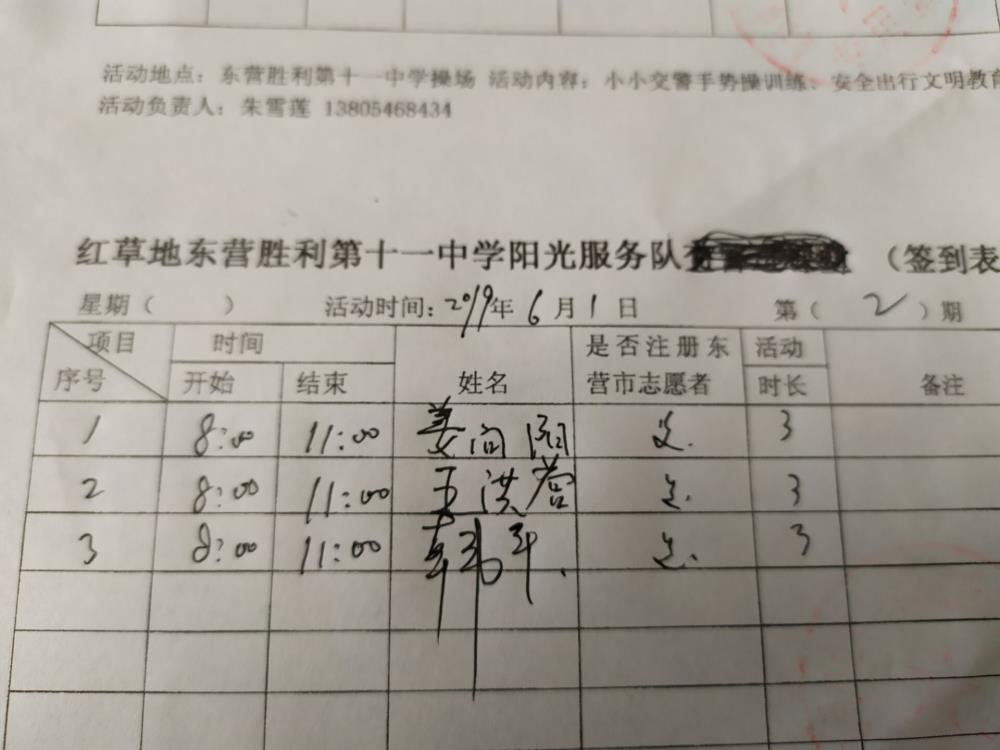 活动地点：东营胜利第十一中学操场 活动内容：小小交警手势操训练、安全出行文明教育
活动负责人：朱雪莲 13805468434
红草地东营胜利第十一中学阳光服务队 （签到表
星期（ ） 活动时间：2019年6月1日 第（2）期
项目 时间 是否注册东 活动
序号 开始 结束 姓名 营市志愿者 时长 备注
1 8:00 11:00 姜向阳 是. 3
2 8:00 11:00 王洪营 是. 3
3 8:00 11:00 韩军. 是. 3